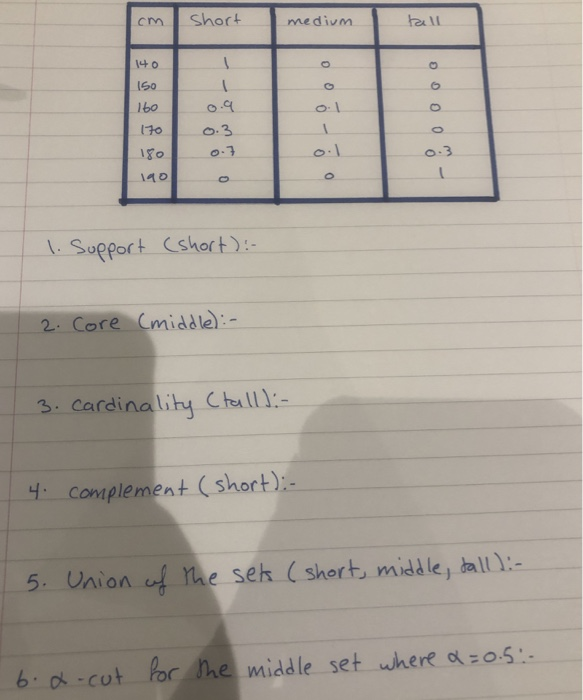 cm short medium tall
140 1 0 0
150 1 0 0
160 0.9 0.1 0
170 0.3 1 0
180 0.7 0.1 0.3
190 0 0 1
1. Support (short):-
2. Core (middle):-
3. Cardinality (tall):-
4. complement (short):-
5. Union of the sets (short, middle, tall):-
6. α-cut for the middle set where α=0.5:-